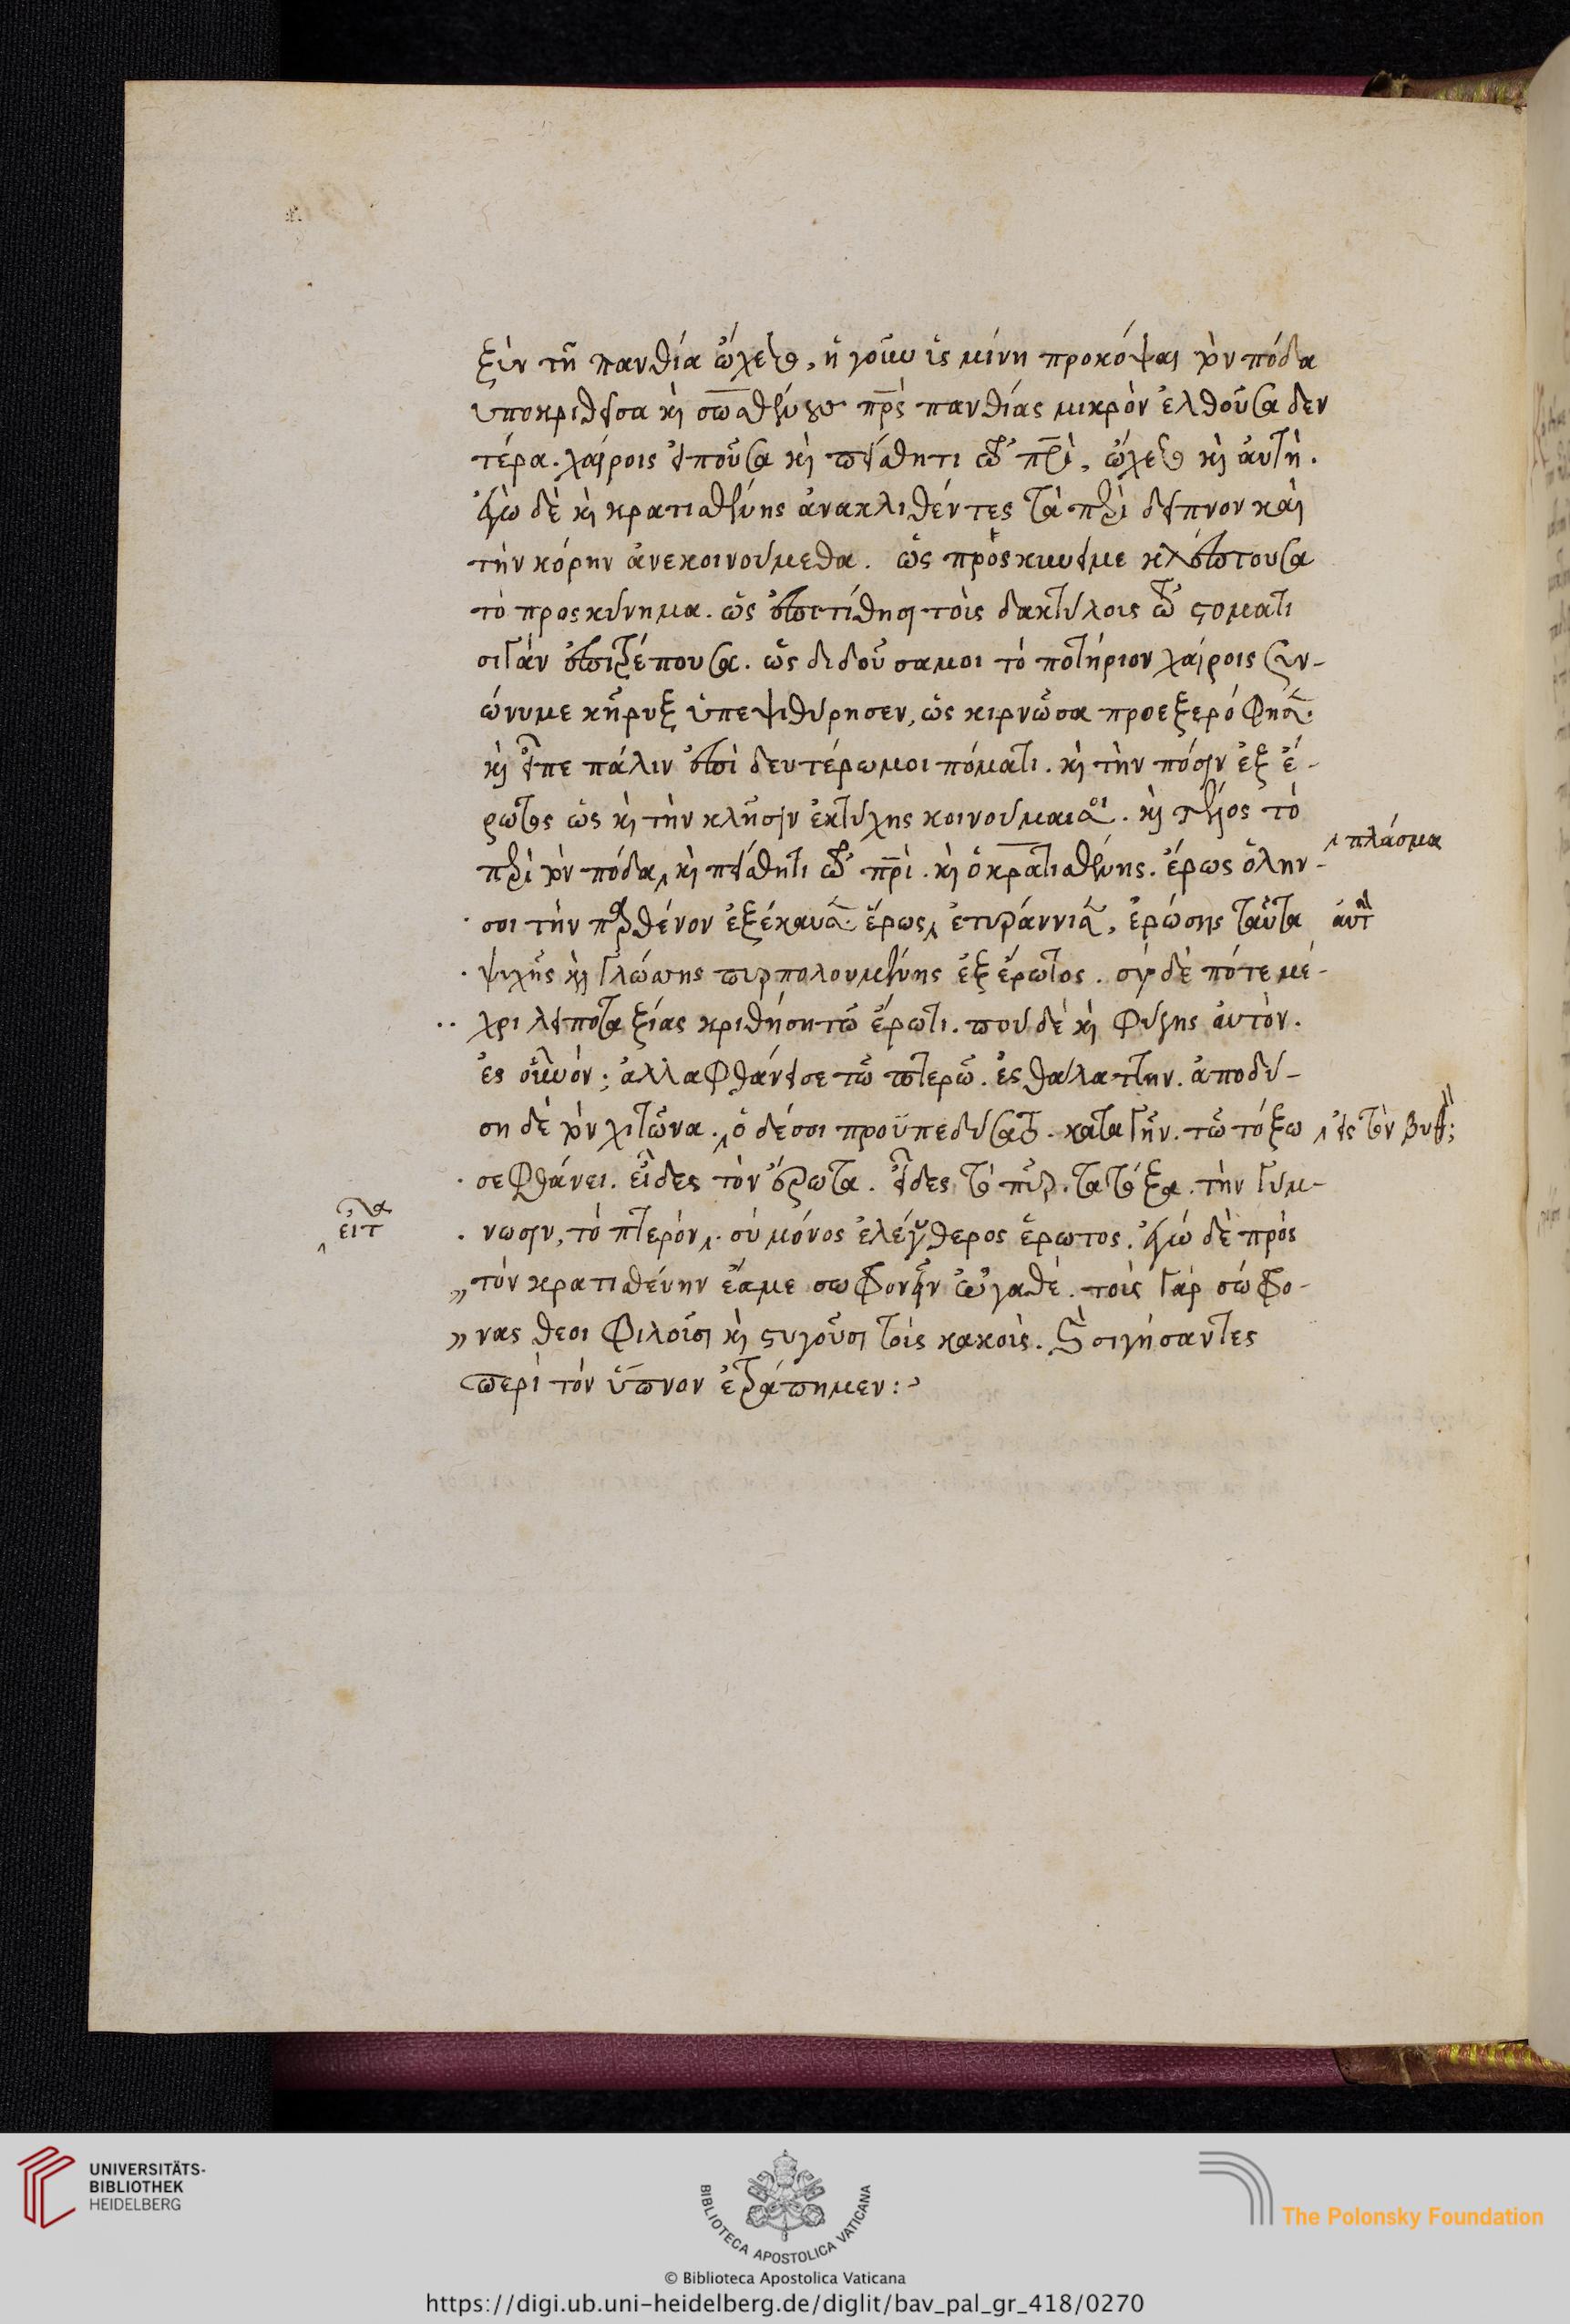 ξὺν τῆ πανθία ᾤχετο, ἡ γοῦν ἰσμίνη προκόψαι τὸν πόδα
ὑποκριθεῖσα καὶ σωσθένους πρὸς πανθίας μικρὸν ἐλθοῦσα δευ
τέρα. χαίροις εἰποῦσα καὶ σωσθένει τῶ πατρὶ, ᾤχετο καὶ αὐτὴ.
ἐγὼ δὲ καὶ κρατισθένης ἀνακλιθέντες τὰ περὶ δεῖπνον καὶ
τὴν κόρην ἀνεκοινούμεθα. ὡς προσκυνεῖ με κλέπτουσα
τὸ προσκύνημα. ὡς ἐπιτίθησι τοῖς δακτύλοις τῶ στόματι
σιγὰν ἐπιτρέπουσα. ὡς διδοῦσα μοι τὸ ποτήριον χαίροις συν-
ώνυμε κῆρυξ ὑπεψιθύρησεν, ὡς κιρνῶσα προεξερόφησε.
καὶ εἶπε πάλιν ἐπὶ δευτέρω μοι πόματι. καὶ τὴν πόσιν ἐξ ἔ-
ρωτος ὡς καὶ τὴν κλῆσιν ἐκ τύχης κοινοῦμαι σοι. καὶ τέλος τὸ
περὶ τὸν πόδα, καὶ σωσθένει τῶ πατρὶ. καὶ ὁ κρατισθένης. ἔρως ὅλην-
πλάσμα
σοι τὴν παρθένον ἐξέκαυσεν. ἔρως, ἐτυράννισεν, ἐρώσης ταῦτα
αὐτὴν
ψυχῆς καὶ γλώσσης πυρπολουμένης ἐξ ἔρωτος. σὺ δὲ πότε μέ-
χρι λειποταξίας κριθήση τῶ ἔρωτι. ποῦ δὲ καὶ φύγης αὐτὸν.
ἐς οὐρανόν; ἀλλὰ φθάνει σε τῶ πτερῶ. ἐς θάλατταν. ἀποδύ-
ση δὲ τὸν χιτῶνα. ὁ δέ σοι προϋπεδύσατο. κατὰ γῆν. τῶ τόξω
εἰς τὸν βυθὸν;
σε φθάνει. εἶδες τὸν ἔρωτα. εἶδες τὸ πῦρ. τὰ τόξα. τὴν γύμ-
εἶτα
νωσιν, τὸ πτερόν. σὺ μόνος ἐλεύθερος ἔρωτος. ἐγὼ δὲ πρὸς
τὸν κρατισθένην ἔα με σωφρονεῖν ὠγαθὲ. τοὺς γὰρ σώφρο-
νας θεοὶ φιλοῦσι καὶ στυγοῦσι τοὺς κακοὺς. καὶ σιγήσαντες
περὶ τὸν ὕπνον ἐτράπημεν:
UNIVERSITÄTS-
BIBLIOTHEK
HEIDELBERG
BIBLIOTECA APOSTOLICA VATICANA
The Polonsky Foundation
© Biblioteca Apostolica Vaticana
https://digi.ub.uni-heidelberg.de/diglit/bav_pal_gr_418/0270